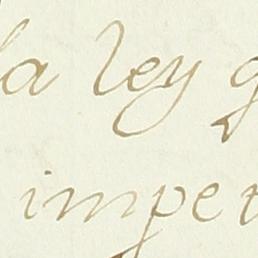 la ley q
impet